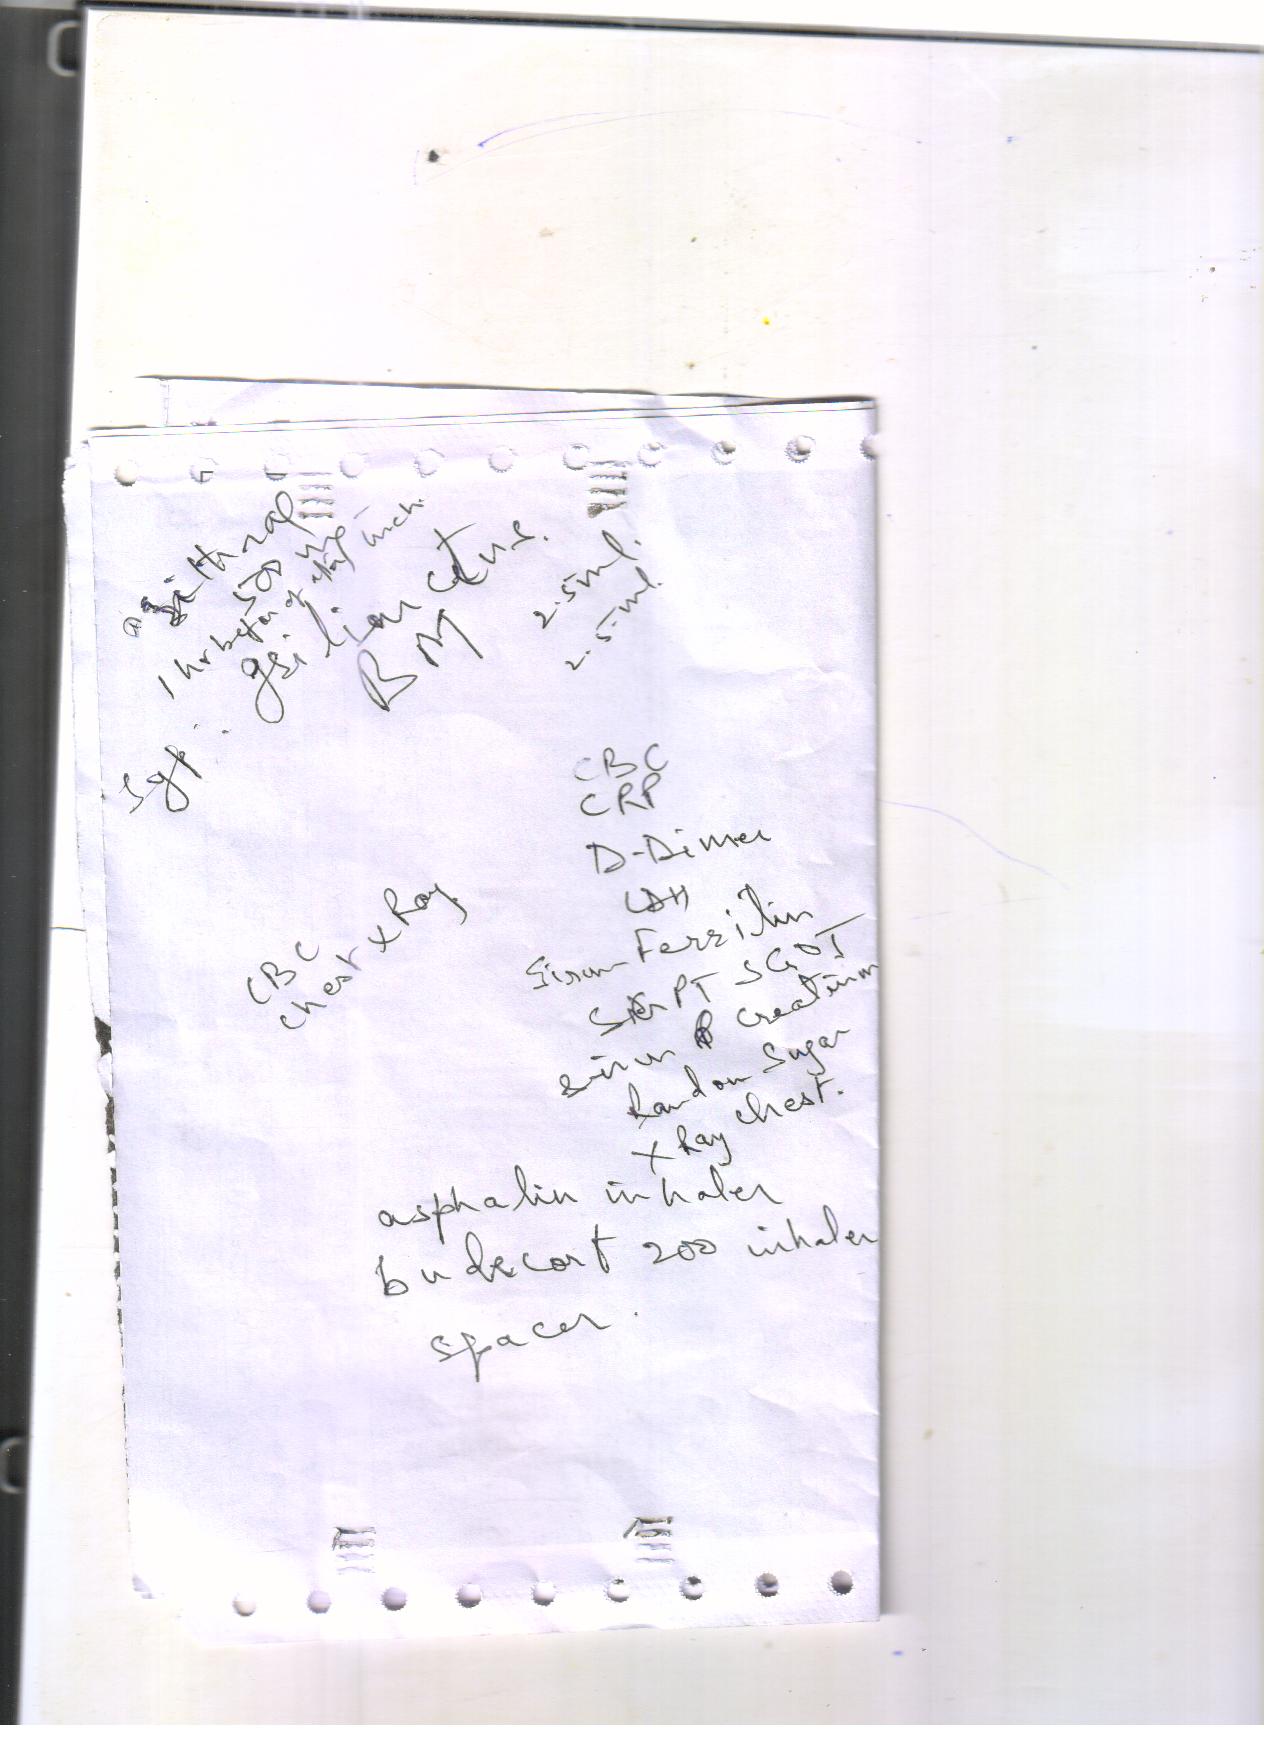 azithral
500 mg
1 hr before
Syp.
BM
2.5 ml.
2.5 ml.
CBC
CRP
D-Dimer
LDH
CBC
chest x Ray
Sirum Ferritin
PT SGOT
sirum creatinin
Random Sugar
X Ray chest.
asphalin inhaler
budecort 200 inhaler
spacer.